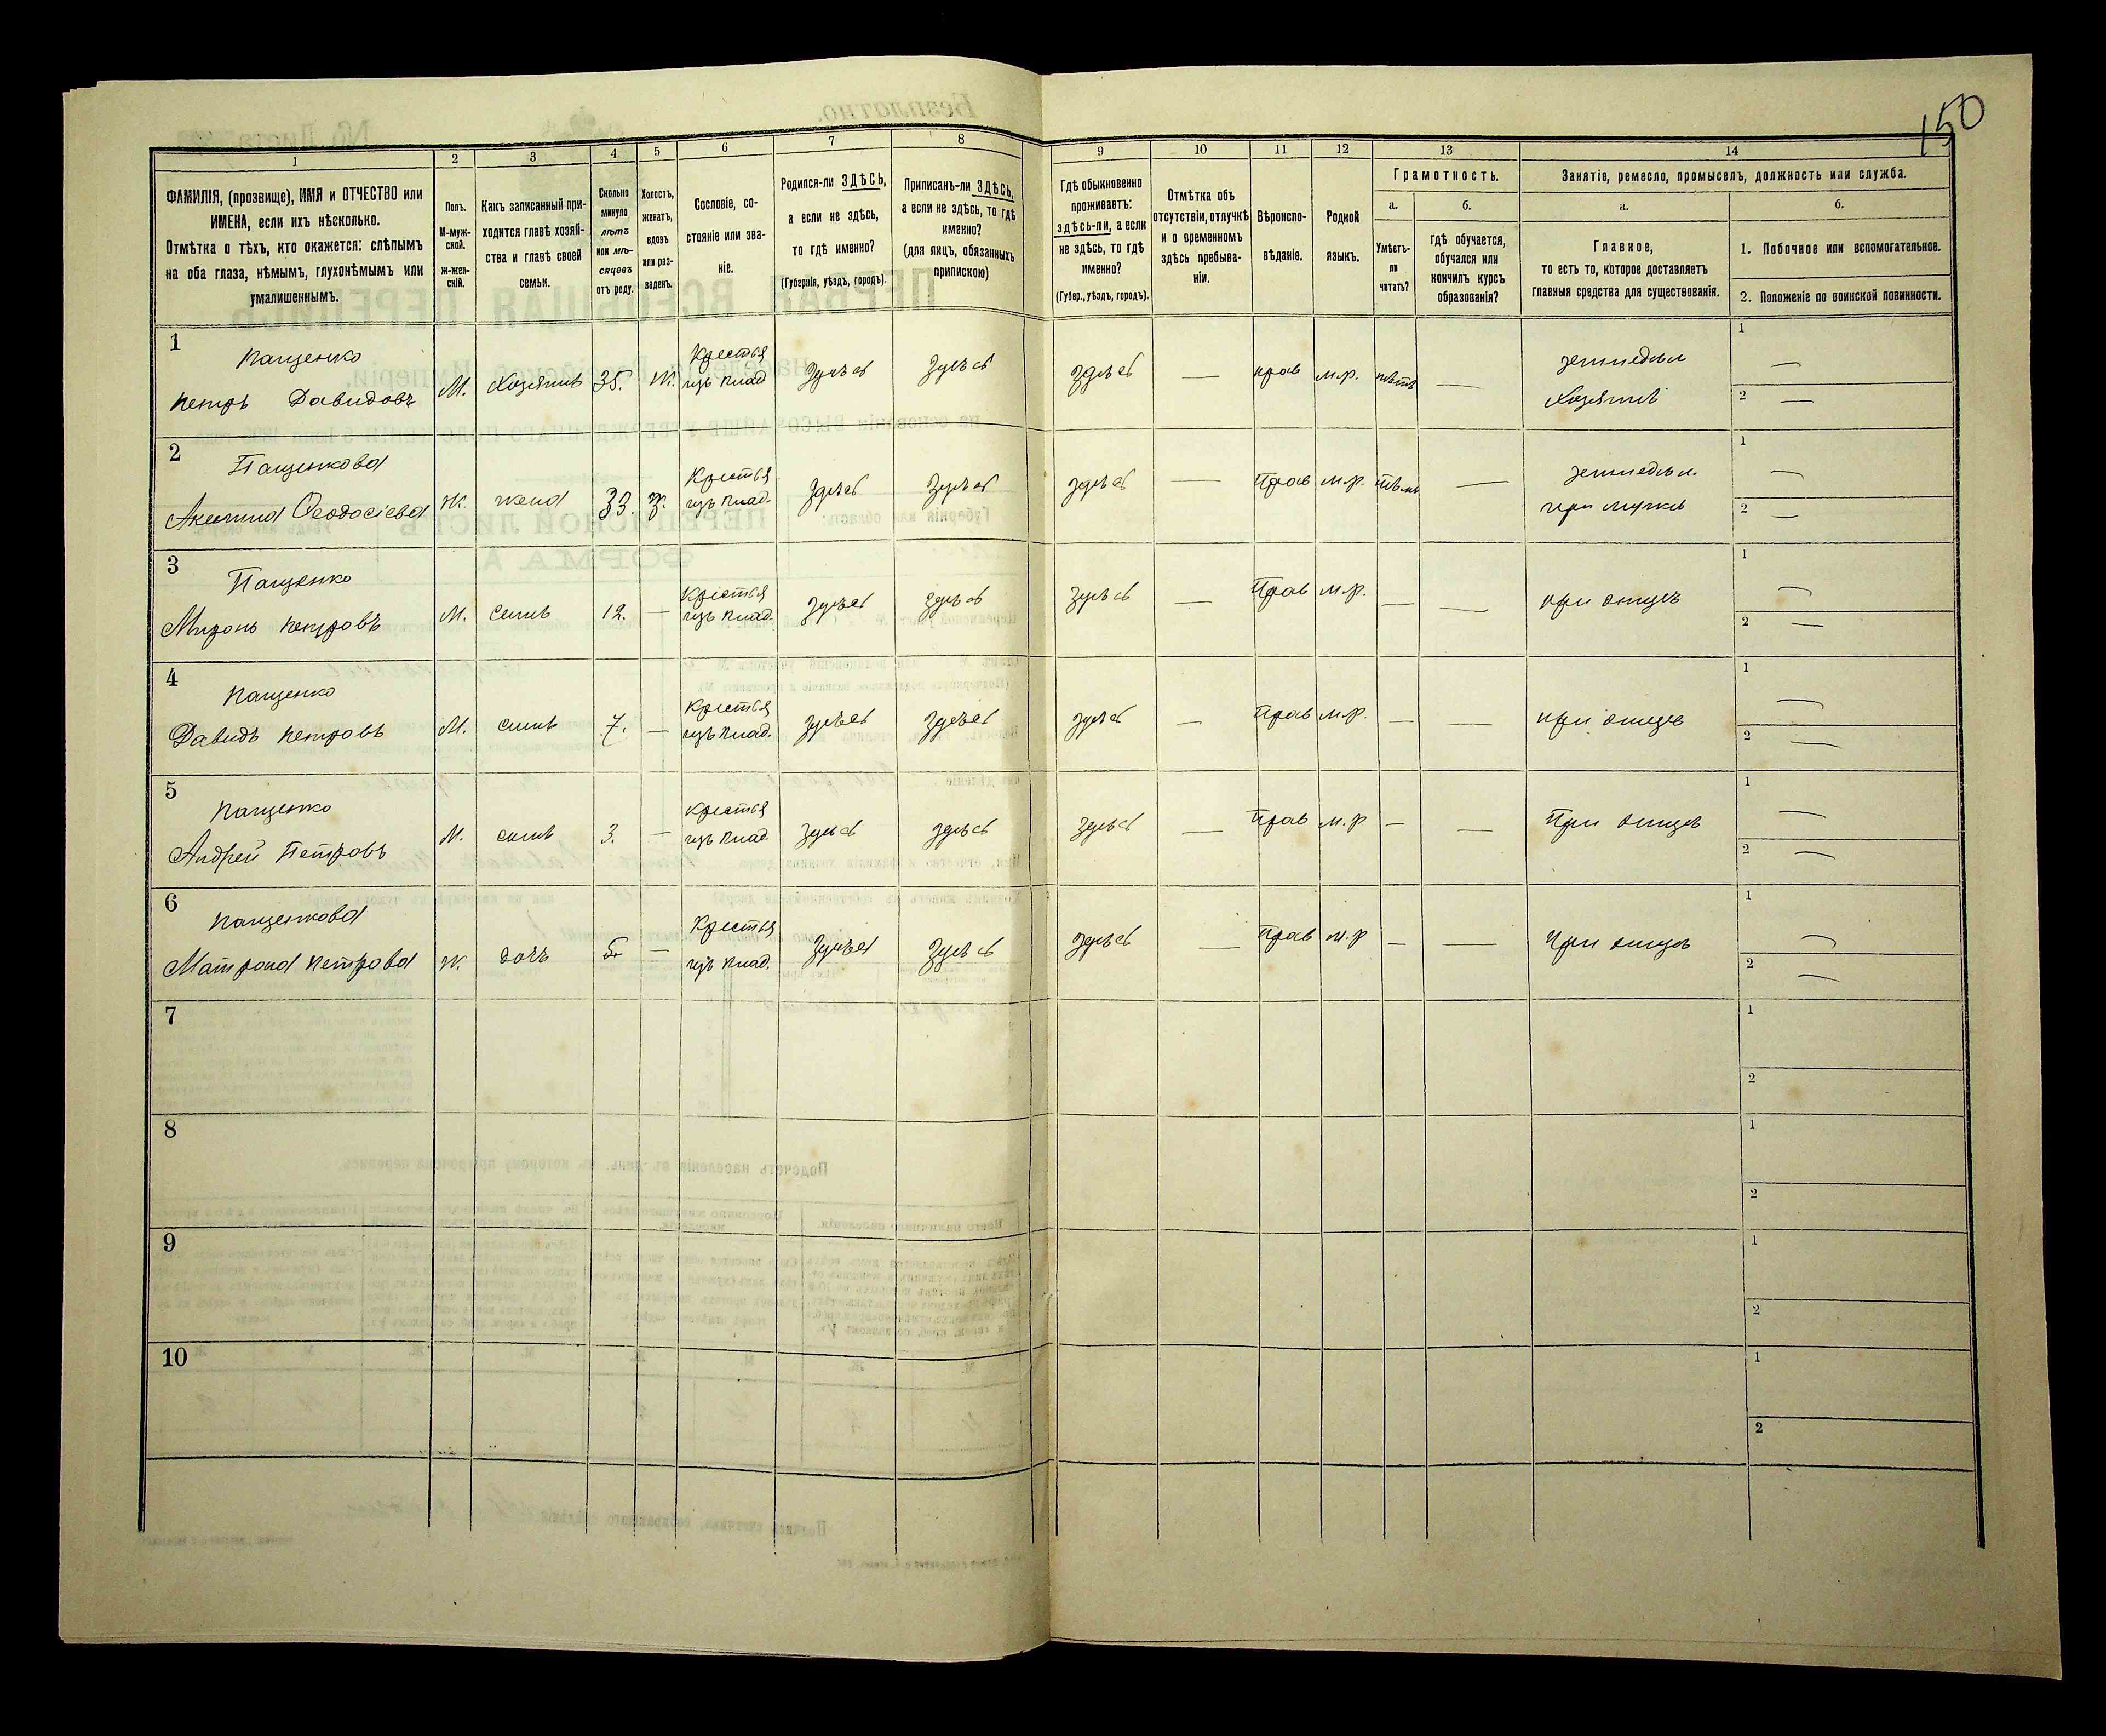 150
1 2 3 4 5 6 7 8 9 10 11 12 13 14
ФАМИЛІЯ, (прозвище), ИМЯ и ОТЧЕСТВО или
ИМЕНА, если ихъ нѣсколько.
Отмѣтка о тѣхъ, кто окажется: слѣпымъ
на оба глаза, нѣмымъ, глухонѣмымъ или
умалишеннымъ.
Полъ.
М-муж-
ской.
Ж-жен-
скій.
Какъ записанный при-
ходится главѣ хозяй-
ства и главѣ своей
семьи.
Сколько
минуло
лѣтъ
или мѣ-
сяцевъ
отъ роду.
Холостъ,
женатъ,
вдовъ
или раз-
веденъ.
Сословіе, со-
стояніе или зва-
ніе.
Родился-ли ЗДѢСЬ,
а если не здѣсь,
то гдѣ именно?
(Губернія, уѣздъ, городъ).
Приписанъ-ли ЗДѢСЬ,
а если не здѣсь, то гдѣ
именно?
(для лицъ, обязанныхъ
припискою)
Гдѣ обыкновенно
проживаетъ:
здѣсь-ли, а если
не здѣсь, то гдѣ
именно?
(Губер., уѣздъ, городъ).
Отмѣтка объ
отсутствіи, отлучкѣ
и о временномъ
здѣсь пребыва-
ніи.
Вѣроиспо-
вѣданіе.
Родной
языкъ.
Грамотность.
а.
Умѣетъ-
ли
читать?
б.
гдѣ обучается,
обучался или
кончилъ курсъ
образованія?
Занятіе, ремесло, промыселъ, должность или служба.
а.
Главное,
то есть то, которое доставляетъ
главныя средства для существованія.
б.
1. Побочное или вспомогательное.
2. Положеніе по воинской повинности.
1
Пащенко Крестья земледѣл 1 —
Петръ Давидовъ М. Хозяинъ 35. Ж. изъ влад Здѣсь Здѣсь здѣсь — прав м.р. нѣтъ — Хозяинъ 2 —
2
Пащенкова Крестья земледѣл. 1 —
Акилина Ѳеодосіева Ж. жена 33. З. изъ влад. Здѣсь Здѣсь здѣсь — Прав м.р. нѣтъ — при мужѣ 2 —
3
Пащенко Крестья 1 —
Миронъ Петровъ М. Сынъ 12. — изъ влад. Здѣсь Здѣсь Здѣсь — Прав м.р. — — при отцѣ 2 —
4
Пащенко Крестья 1 —
Давидъ Петровъ М. сынъ 7. — изъ влад. Здѣсь Здѣсь Здѣсь — Прав м.р. — — при отцѣ 2 —
5
Пащенко Крестья 1 —
Андрей Петровъ М. сынъ 3. — изъ влад Здѣсь Здѣсь Здѣсь — Прав м.р — — При отцѣ 2 —
6
Пащенкова Крестья 1 —
Матрона Петрова Ж. дочь 5 — изъ влад. Здѣсь Здѣсь Здѣсь — Прав м.р — — При отцѣ 2 —
7 1
2
8 1
2
9 1
2
10 1
2